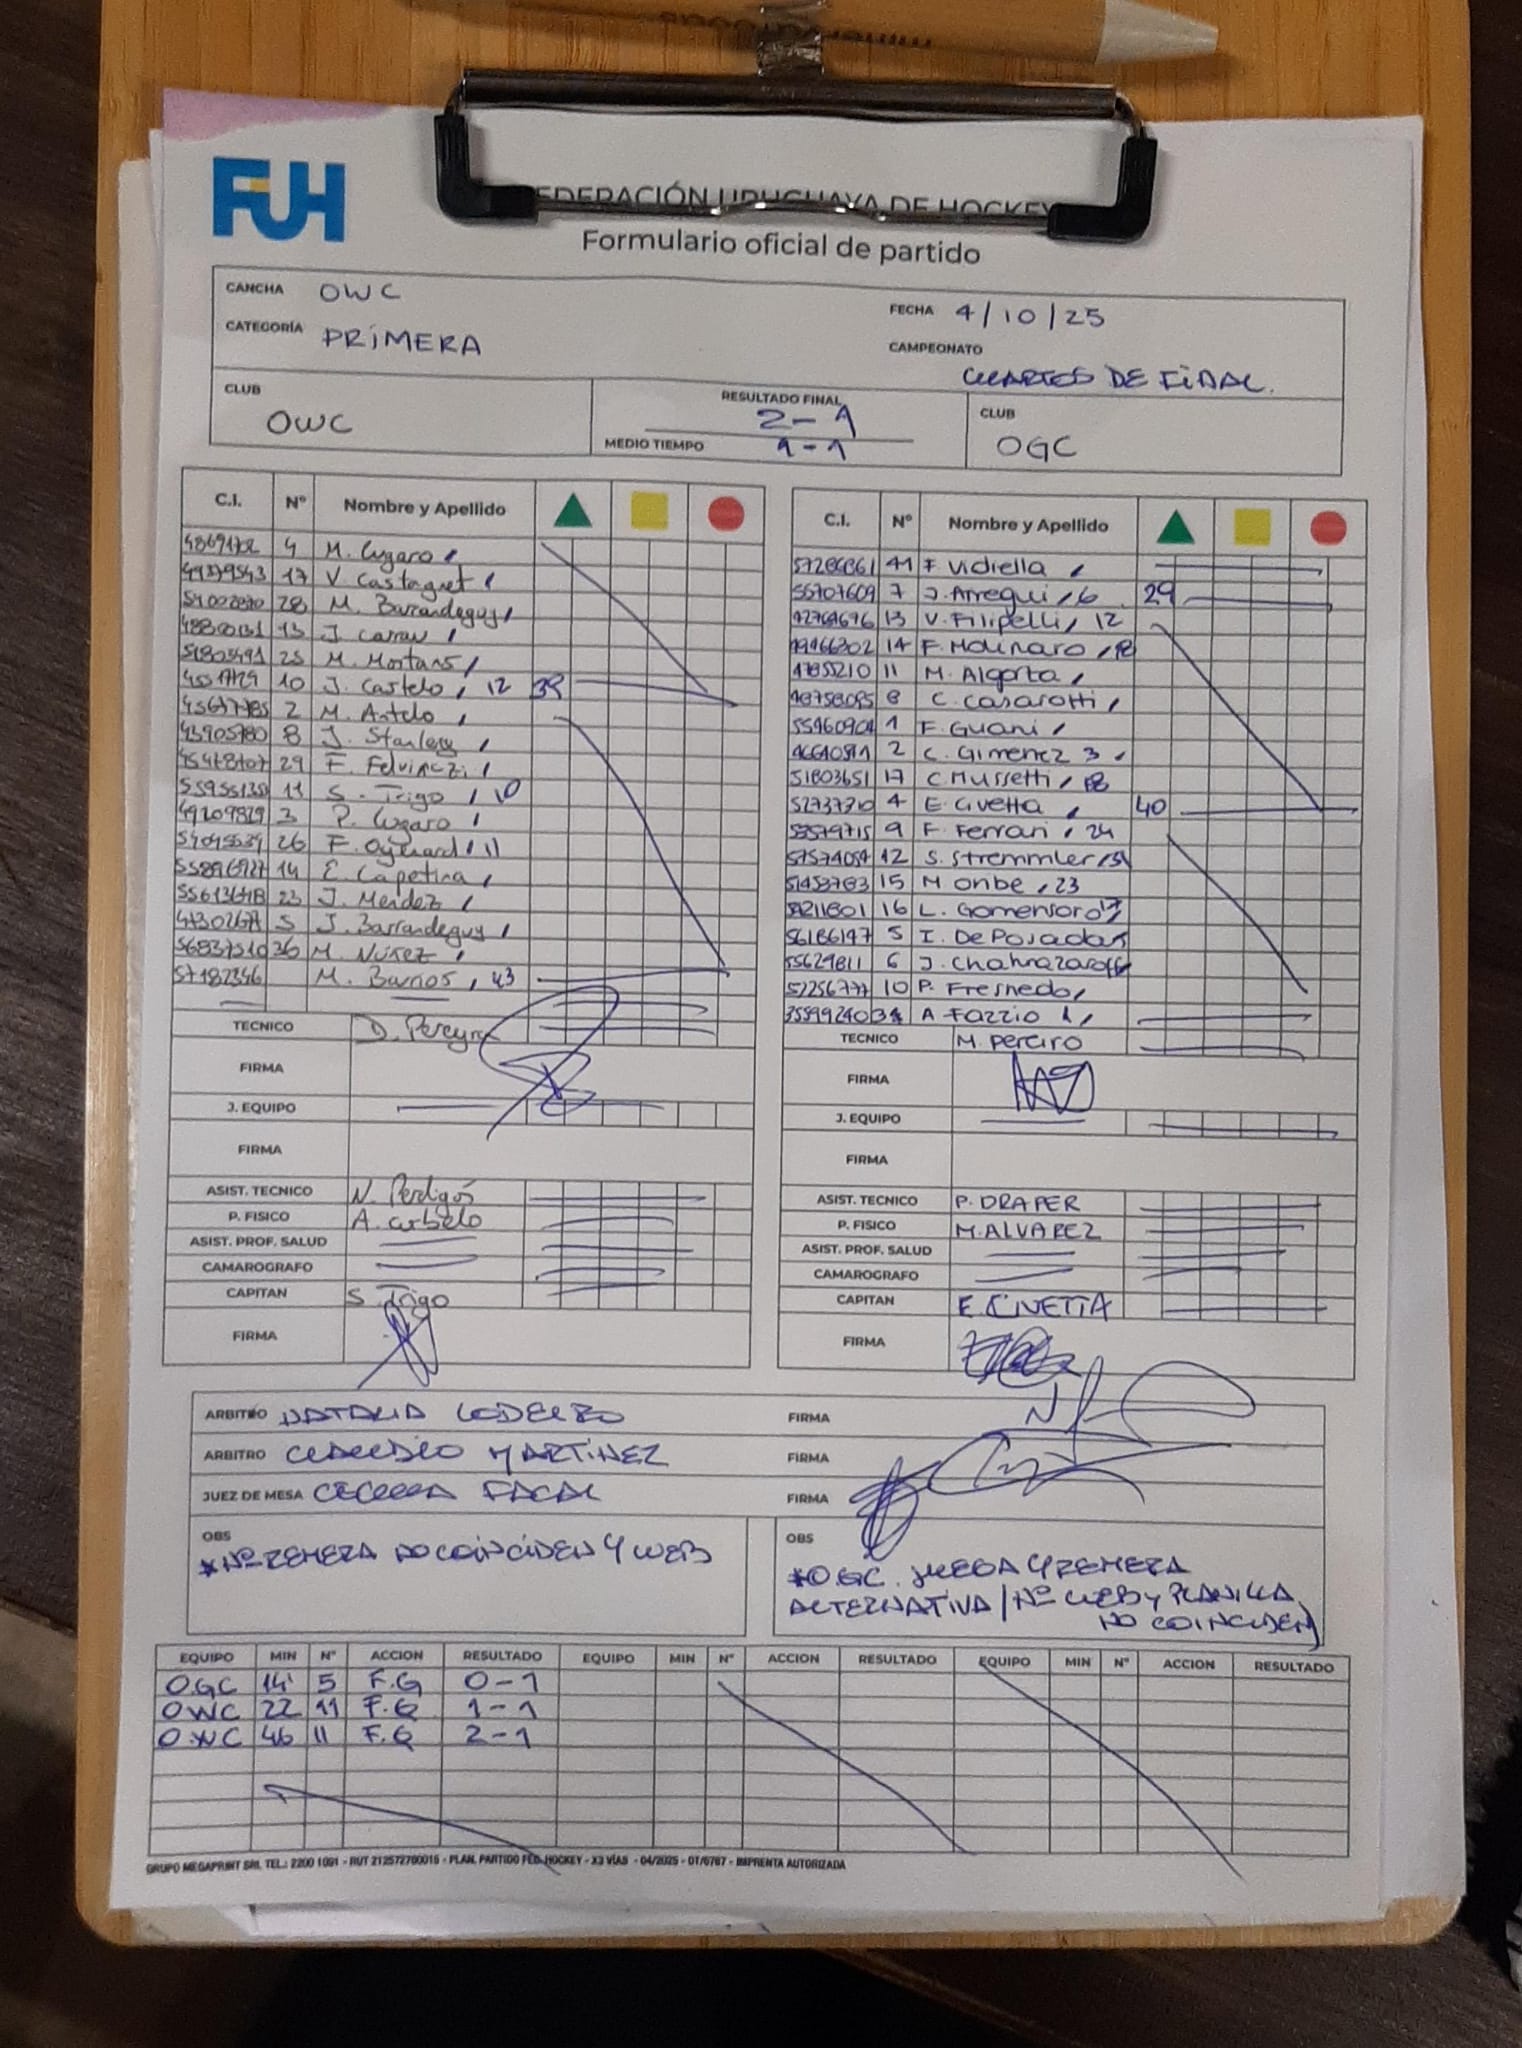 FUH
FEDERACIÓN URUGUAYA DE HOCKEY
Formulario oficial de partido
CANCHA OWC
FECHA 4/10/25
CATEGORÍA PRIMERA
CAMPEONATO CUARTOS DE FINAL.
CLUB OWC
RESULTADO FINAL 2-1
MEDIO TIEMPO 1-1
CLUB OGC
C.I. Nº Nombre y Apellido
4 M. Lugaro
17 V. Castagnet
28 M. Barrandeguy
13 J. Carrau
25 M. Mortans
10 J. Castelo, 12 39
2 M. Antelo
8 J. Stanley
29 F. Felvinczi
11 S. Trigo, 10
49209829 3 P. Lugaro
26 F. Oyenard, 11
14 E. Capetina
23 J. Mendez
5 J. Barrandeguy
56837510 36 M. Núñez
57182346 M. Barrios, 43
TECNICO D. Pereyra
FIRMA
J. EQUIPO
FIRMA
ASIST. TECNICO N. Perdigós
P. FISICO A. Curbelo
ASIST. PROF. SALUD
CAMAROGRAFO
CAPITAN S. Trigo
FIRMA
C.I. Nº Nombre y Apellido
57286861 41 F Vidiella
55707609 7 J. Arregui, 6 29
13 V. Filipelli, 12
49466302 14 F. Molinaro
11 M. Algorta
8 C. Casarotti
55460904 1 F. Guani
2 C. Gimenez 3
51803651 17 C. Mussetti
52737710 4 E. Civetta 40
9 F. Ferrari, 24
57574054 12 S. Stremmler
51458783 15 M Oribe, 23
16 L. Gomensoro
56186147 5 I. De Posadas
55629811 6 J. Chakrazaroff
52256777 10 P. Fresnedo
A Fazzio
TECNICO M. Pereiro
FIRMA
J. EQUIPO
FIRMA
ASIST. TECNICO P. DRAPER
P. FISICO M. ALVAREZ
ASIST. PROF. SALUD
CAMAROGRAFO
CAPITAN E. CIVETTA
FIRMA
ARBITRO NATALIA FIRMA
ARBITRO CLAUDIO MARTINEZ FIRMA
JUEZ DE MESA CECILIA FACAL FIRMA
OBS
*Nº REMERA NO COINCIDEN Y WEB
OBS
*O.GC. JUEGA Y REMERA
ALTERNATIVA / Nº WEB Y PLANILLA
NO COINCIDEN
EQUIPO MIN Nº ACCION RESULTADO EQUIPO MIN Nº ACCION RESULTADO EQUIPO MIN Nº ACCION RESULTADO
O.GC 14' 5 F.G 0-1
OWC 22 11 F.G 1-1
O.WC 46 11 F.G 2-1
GRUPO MEGAPRINT SRL TEL.: 2200 1091 - RUT 212572760015 - PLAN. PARTIDO FED. HOCKEY - X3 VÍAS - 04/2025 - OT/6767 - IMPRENTA AUTORIZADA